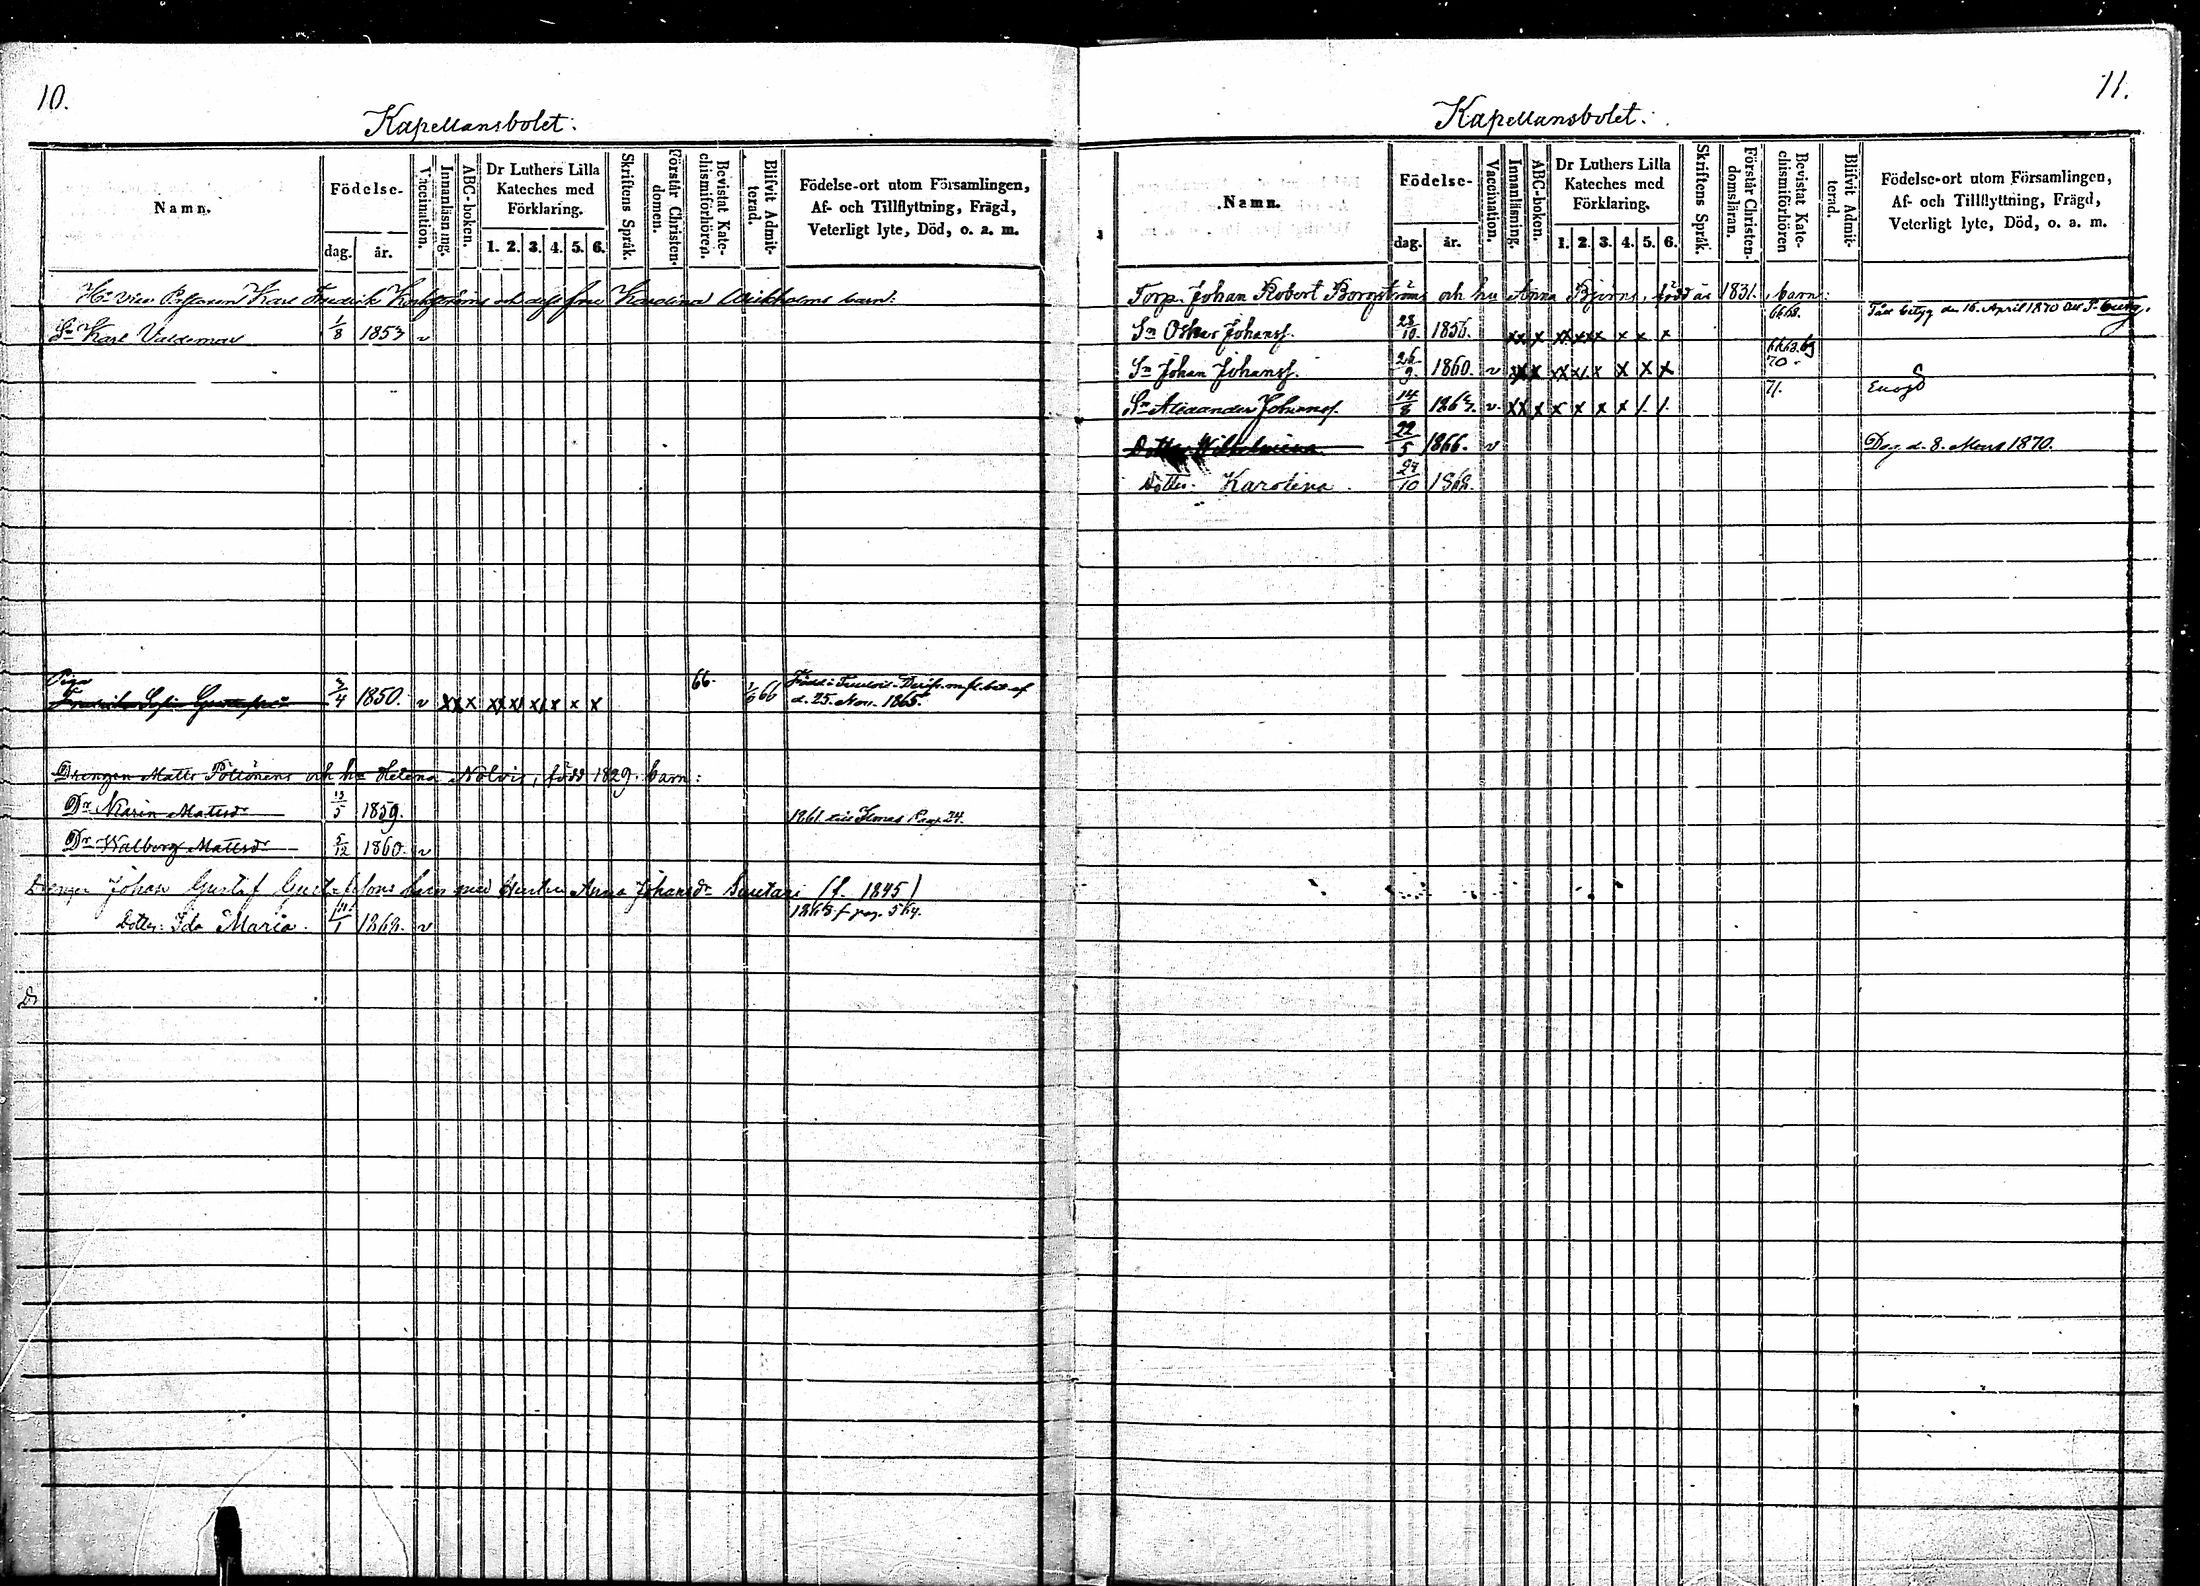 10.
Kapellansbolet.
Namn.
Födelse-
dag. år.
Vaccination.
Innanläsning.
ABC-boken.
Dr Luthers Lilla
Kateches med
Förklaring.
1. 2. 3. 4. 5. 6.
Skriftens Språk.
Förstår Christen-
domen.
Bevistat Kate-
chismiförhören.
Blifvit Admit-
terad.
Födelse-ort utom Församlingen,
Af- och Tillflyttning, Frägd,
Veterligt lyte, Död, o. a. m.
Karl Fredrik och dess fru Karolina barn:
Sn Karl Valdemar 1/8 1853 v
Piga
Sofia 3/4 1850. v x x x x x x x x x 66. 66
d. 25. Nov. 1865.
Drengen Matts och hu Helena Nolvis, född 1829. barn:
Dr Karin Mattsdr 13/5 1859. 1861 till Pag. 24.
Dr Walborg Mattsdr 5/12 1860. v
Johan Gustaf barn med Hustru Anna Johansdr (f. 1845)
Dotter: Ida Maria. 1868. v 1868 f. pag.
Dr
11.
Kapellansbolet.
Namn.
Födelse-
dag. år.
Vaccination.
Innanläsning.
ABC-boken.
Dr Luthers Lilla
Kateches med
Förklaring.
1. 2. 3. 4. 5. 6.
Skriftens Språk.
Förstår Christen-
domsläran.
Bevistat Kate-
chismiförhören
Blifvit Admit-
terad.
Födelse-ort utom Församlingen,
Af- och Tillflyttning, Frägd,
Veterligt lyte, Död, o. a. m.
Torp. Johan Robert Borgströms och hu Anna Björns, född år 1831. barn:
Sn Oskar Johanss. 28/10 1856. x x x x x x x x x betyg den 16. April 1870 till P.burg.
Sn Johan Johanss. 26/9 1860. v x x x x x x x x 70.
Sn Alexander Johanss. 14/8 1863. v. x x x x x x x / / 71. Enögd
Dotter Wilhelmina 22/5 1866. v Dog d. 8. Mars 1870.
Dotter. Karolina. 27/10 1868.